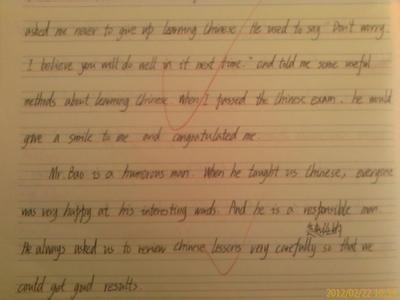 asked me never to give up learning Chinese. He used to say "Don't worry.
I believe you will do well in it next time." and told me some useful
methods about learning Chinese. When I passed the Chinese exam, he would
give a smile to me and congratulated me.
Mr. Bao is a humorous man. When he taught us Chinese, everyone
was very happy at his interesting words. And he is a responsible man.
He always asked us to review Chinese lessons very carefully so that we
could got good results.
2012/02/22